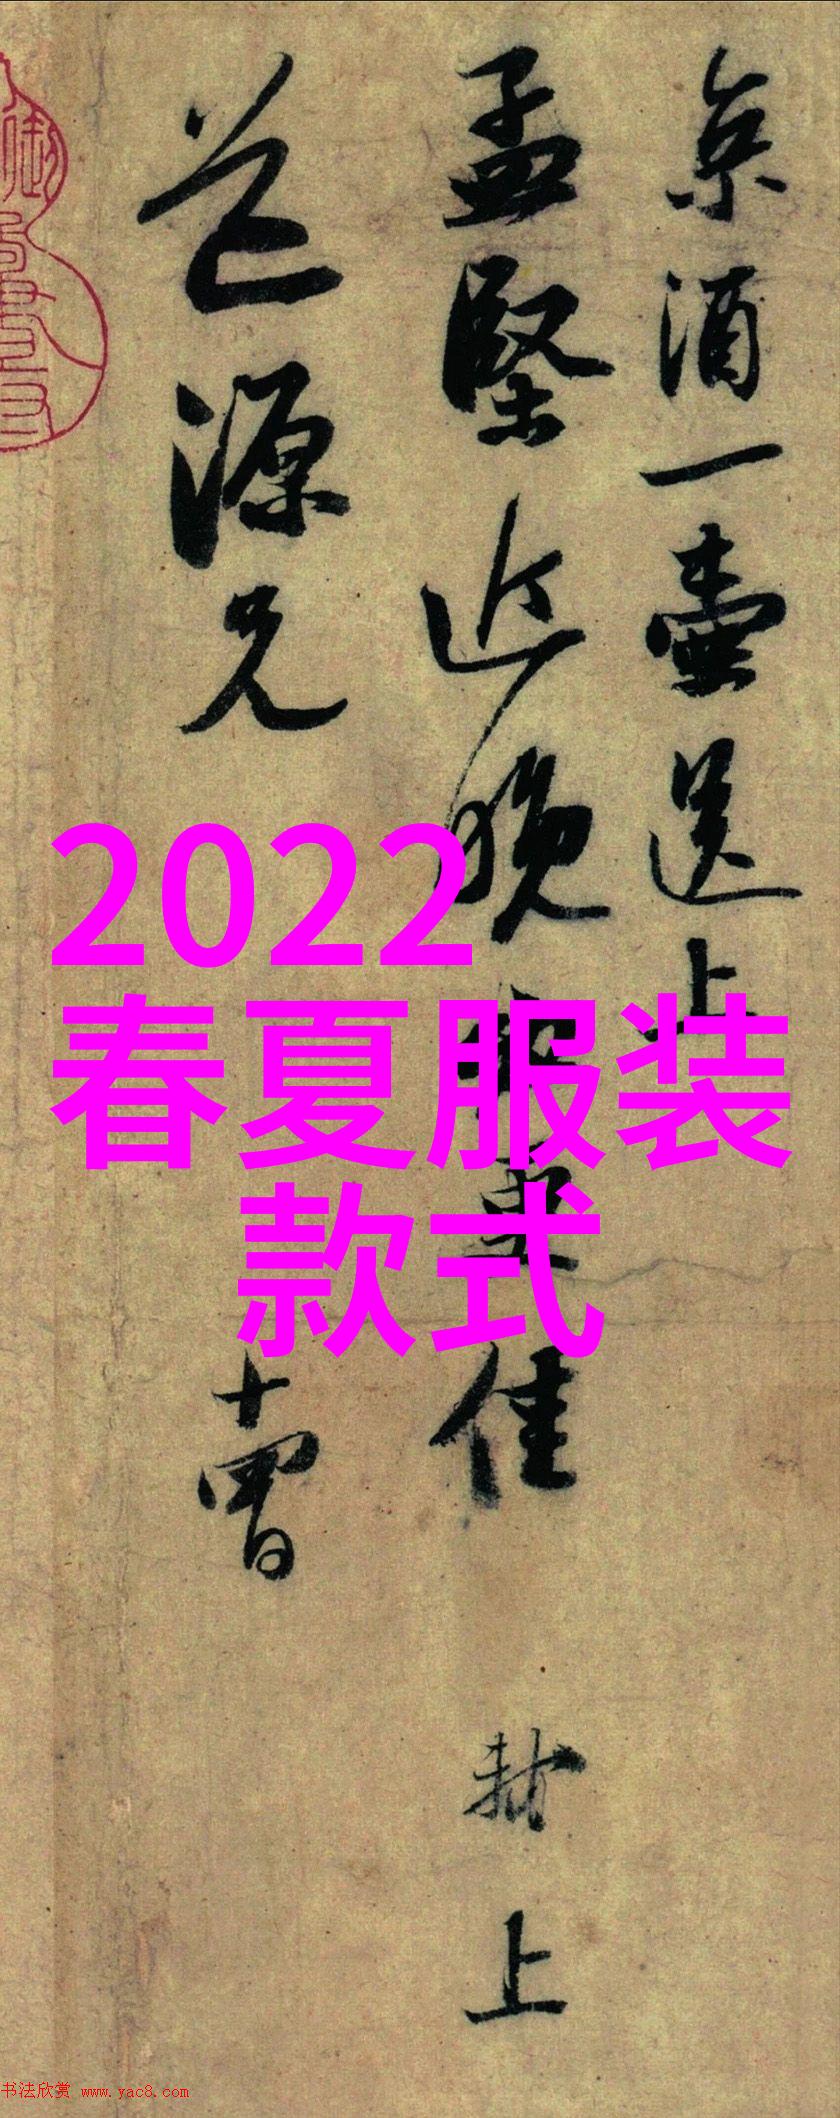 京酒一壶送上
孟坚近晚必更佳
封上
道源兄
十四曾
2022
春夏服装
款式
书法欣赏 www.yac8.com